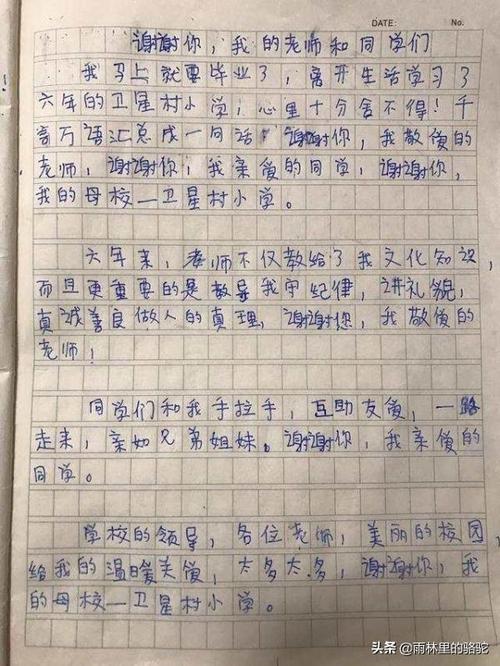 DATE: No.
谢谢你，我的老师和同学们
我马上就要毕业了，离开生活学习了
六年的卫星村小学，心里十分舍不得！千
言万语汇总成一句话，谢谢你，我敬爱的
老师，谢谢你，我亲爱的同学，谢谢你，
我的母校—卫星村小学。
六年来，老师不仅教给了我文化知识，
而且更重要的是教导我守纪律，讲礼貌，
真诚善良做人的真理，谢谢您，我敬爱的
老师！
同学们和我手拉手，互助友爱，一路
走来，亲如兄弟姐妹。谢谢你，我亲爱的
同学。
学校的领导，各位老师，美丽的校园
给我的温暖关爱，太多太多，谢谢你，我
的母校—卫星村小学。
头条 @雨林里的骆驼